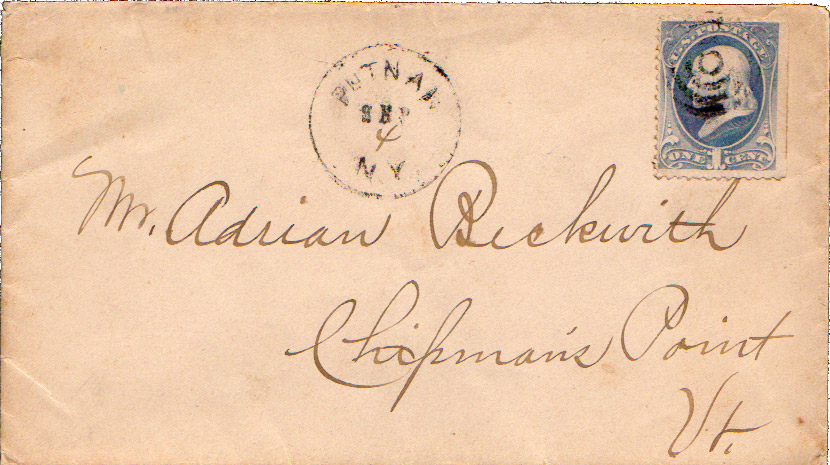 PUTNAM
SEP
4
N.Y.
U.S. POSTAGE
ONE 1 CENT
Mr. Adrian Beckwith
Chipman's Point
Vt.